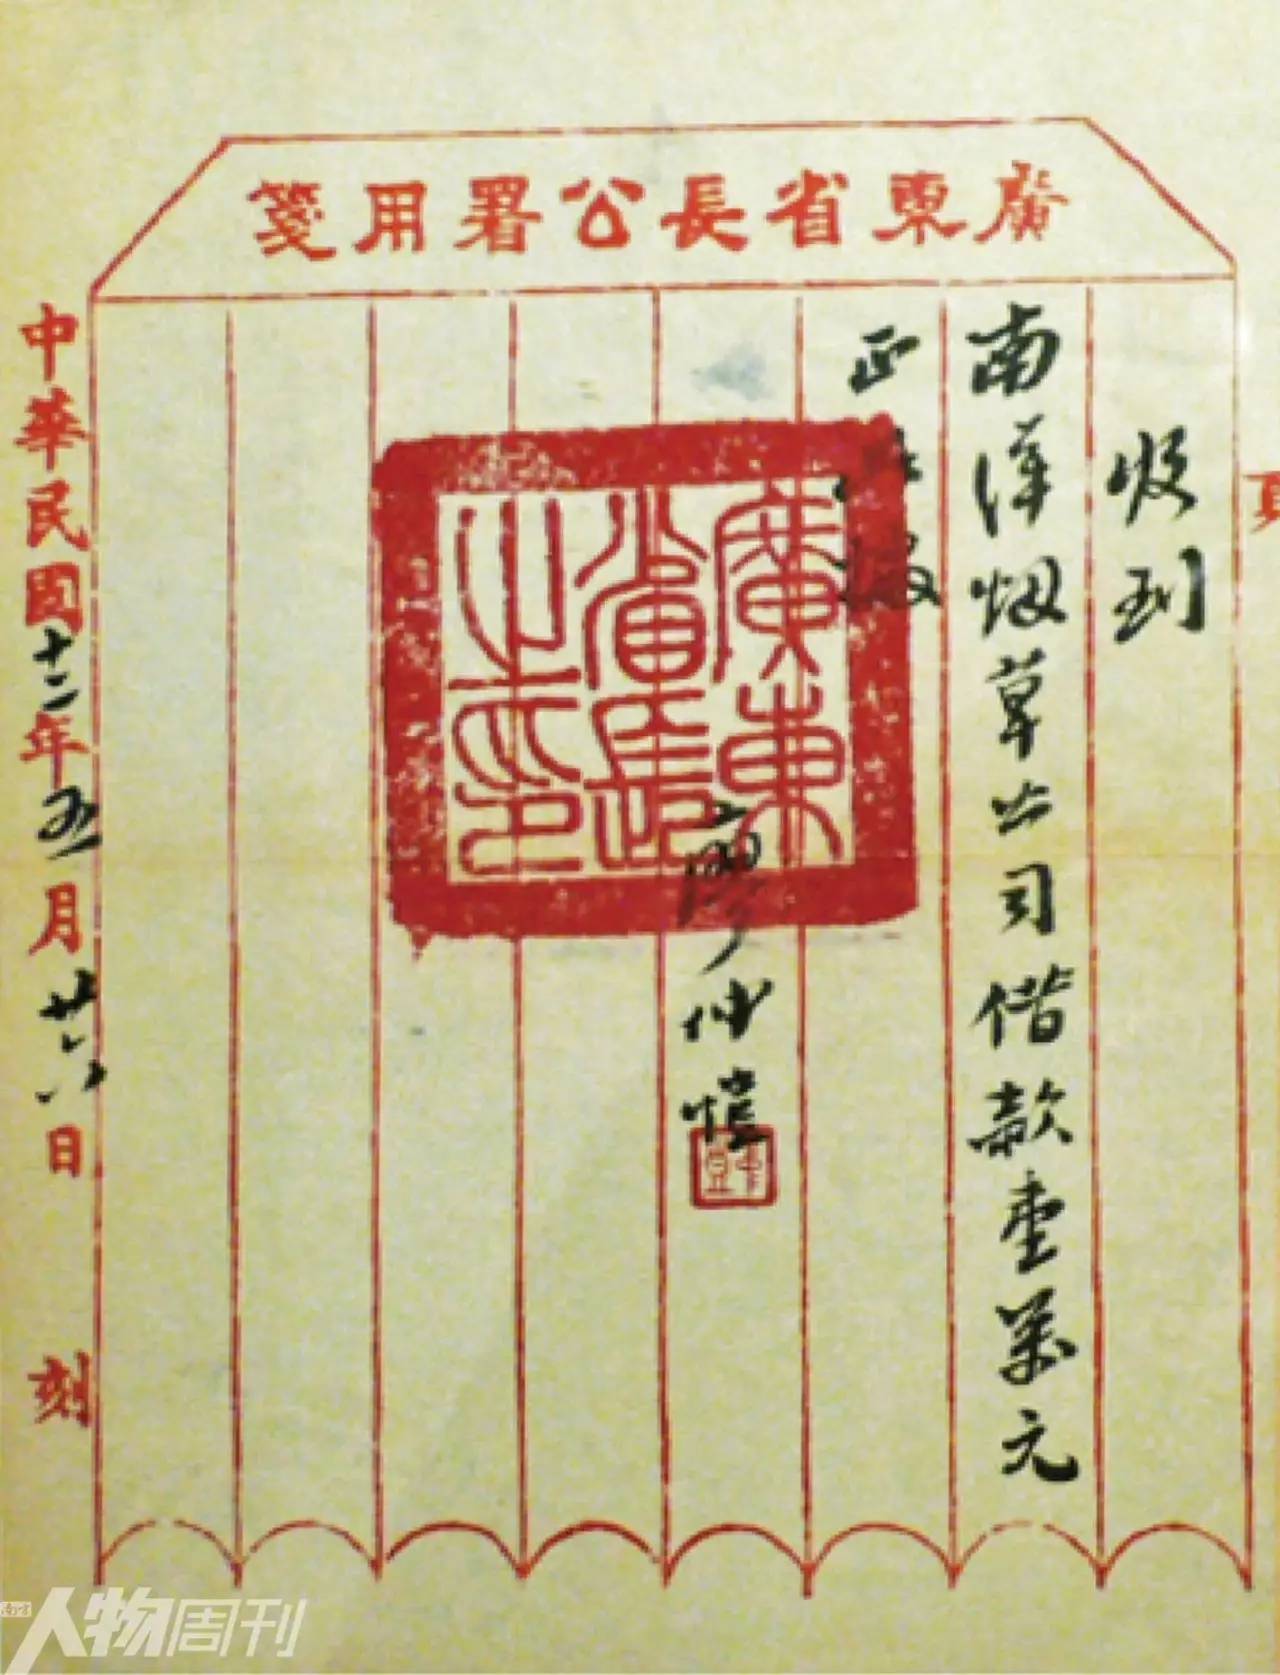 廣東省長公署用箋
頁
收到
南洋烟草公司借款壹萬元
正
廣東省長之印
廖仲愷
中華民國十二年五月廿六日 刻
南方人物周刊